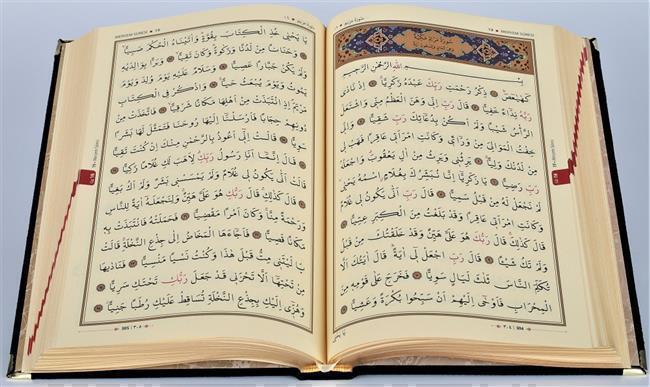 MERYEM SURESİ
بِسْمِ اللّٰهِ الرَّحْمٰنِ الرَّحِيمِ
كٓهٰيٰعٓصٓ ذِكْرُ رَحْمَتِ رَبِّكَ عَبْدَهُ زَكَرِيَّا اِذْ نَادٰى
رَبَّهُ نِدَٓاءً خَفِيًّا قَالَ رَبِّ اِنّ۪ى وَهَنَ الْعَظْمُ مِنّ۪ى وَاشْتَعَلَ
الرَّاْسُ شَيْبًا وَلَمْ اَكُنْ بِدُعَٓائِكَ رَبِّ شَقِيًّا وَاِنّ۪ى
خِفْتُ الْمَوَالِىَ مِنْ وَرَٓاء۪ى وَكَانَتِ امْرَاَت۪ى عَاقِرًا فَهَبْ ل۪ى
مِنْ لَدُنْكَ وَلِيًّا يَرِثُن۪ى وَيَرِثُ مِنْ اٰلِ يَعْقُوبَ وَاجْعَلْهُ
رَبِّ رَضِيًّا يَا زَكَرِيَّٓا اِنَّا نُبَشِّرُكَ بِغُلَامٍ اسْمُهُ يَحْيٰى
لَمْ نَجْعَلْ لَهُ مِنْ قَبْلُ سَمِيًّا قَالَ رَبِّ اَنّٰى يَكُونُ ل۪ى غُلَامٌ
وَكَانَتِ امْرَاَت۪ى عَاقِرًا وَقَدْ بَلَغْتُ مِنَ الْكِبَرِ عِتِيًّا
قَالَ كَذٰلِكَ قَالَ رَبُّكَ هُوَ عَلَىَّ هَيِّنٌ وَقَدْ خَلَقْتُكَ مِنْ قَبْلُ
وَلَمْ تَكُ شَيْـًٔا قَالَ رَبِّ اجْعَلْ ل۪ٓى اٰيَةً قَالَ اٰيَتُكَ اَلَّا
تُكَلِّمَ النَّاسَ ثَلٰثَ لَيَالٍ سَوِيًّا فَخَرَجَ عَلٰى قَوْمِه۪ مِنَ
الْمِحْرَابِ فَاَوْحٰٓى اِلَيْهِمْ اَنْ سَبِّحُوا بُكْرَةً وَعَشِيًّا
٣٠٤ 304
MERYEM SURESİ
سورة مريم
يَا يَحْيٰى خُذِ الْكِتَابَ بِقُوَّةٍ وَاٰتَيْنَاهُ الْحُكْمَ صَبِيًّا
وَحَنَانًا مِنْ لَدُنَّا وَزَكٰوةً وَكَانَ تَقِيًّا وَبَرًّا بِوَالِدَيْهِ
وَلَمْ يَكُنْ جَبَّارًا عَصِيًّا وَسَلَامٌ عَلَيْهِ يَوْمَ وُلِدَ وَيَوْمَ
يَمُوتُ وَيَوْمَ يُبْعَثُ حَيًّا وَاذْكُرْ فِى الْكِتَابِ
مَرْيَمَ اِذِ انْتَبَذَتْ مِنْ اَهْلِهَا مَكَانًا شَرْقِيًّا فَاتَّخَذَتْ مِنْ
دُونِهِمْ حِجَابًا فَاَرْسَلْنَٓا اِلَيْهَا رُوحَنَا فَتَمَثَّلَ لَهَا بَشَرًا
سَوِيًّا قَالَتْ اِنّ۪ٓى اَعُوذُ بِالرَّحْمٰنِ مِنْكَ اِنْ كُنْتَ تَقِيًّا
قَالَ اِنَّمَٓا اَنَا رَسُولُ رَبِّكِ لِاَهَبَ لَكِ غُلَامًا زَكِيًّا
قَالَتْ اَنّٰى يَكُونُ ل۪ى غُلَامٌ وَلَمْ يَمْسَسْن۪ى بَشَرٌ وَلَمْ اَكُ بَغِيًّا
قَالَ كَذٰلِكِ قَالَ رَبُّكِ هُوَ عَلَىَّ هَيِّنٌ وَلِنَجْعَلَهُٓ اٰيَةً لِلنَّاسِ
وَرَحْمَةً مِنَّا وَكَانَ اَمْرًا مَقْضِيًّا فَحَمَلَتْهُ فَانْتَبَذَتْ بِه۪
مَكَانًا قَصِيًّا فَاَجَٓاءَهَا الْمَخَاضُ اِلٰى جِذْعِ النَّخْلَةِ قَالَتْ
يَا لَيْتَن۪ى مِتُّ قَبْلَ هٰذَا وَكُنْتُ نَسْيًا مَنْسِيًّا فَنَادٰيهَا
مِنْ تَحْتِهَٓا اَلَّا تَحْزَن۪ى قَدْ جَعَلَ رَبُّكِ تَحْتَكِ سَرِيًّا
وَهُزّ۪ٓى اِلَيْكِ بِجِذْعِ النَّخْلَةِ تُسَاقِطْ عَلَيْكِ رُطَبًا جَنِيًّا
305 ٣٠٥